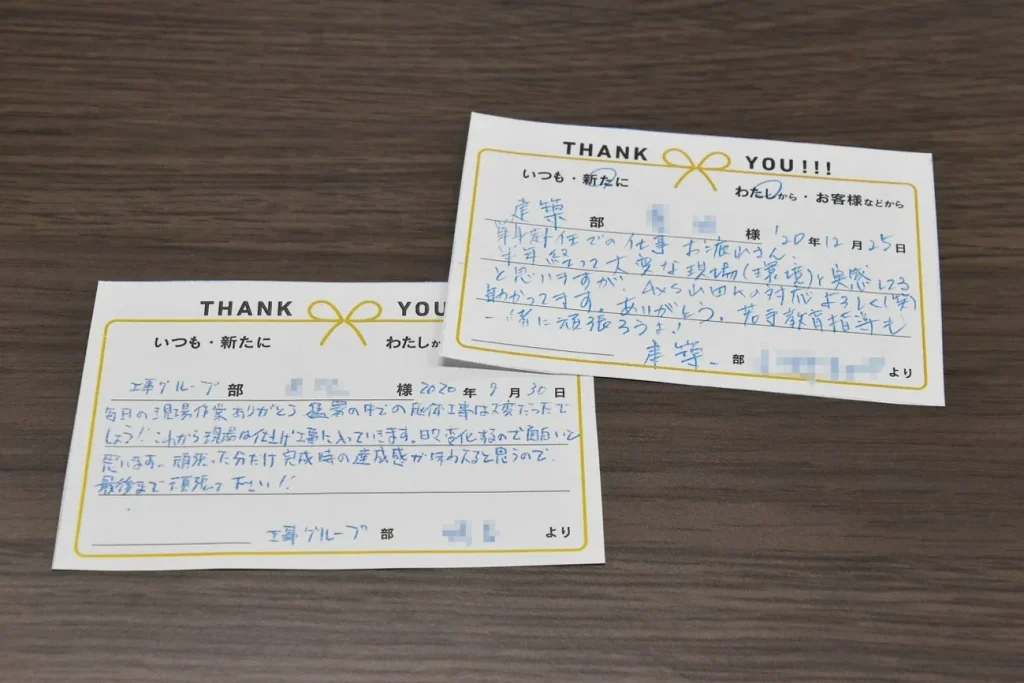 THANK YOU!!!
いつも・新たに わたしから・お客様などから
建築 部 様 '20年12月25日
単身赴任での仕事 お疲れさん。
半年経って大変な現場(環境)と実感してる
と思いますが、AxS山田Kの対応よろしく(笑)
助かってます。ありがとう。若手教育指導も
一緒に頑張ろうよ!
建築 部 より
THANK YOU
いつも・新たに わたしか
工事グループ 部 様 2020年9月30日
毎日の現場作業ありがとう 猛暑の中での躯体工事は大変だったで
しょう!これから現場は仕上げ工事に入っていきます。日々変化するので面白いと
思います。頑張った分だけ完成時の達成感が味わえると思うので
最後まで頑張って下さい!!
工事グループ 部 より